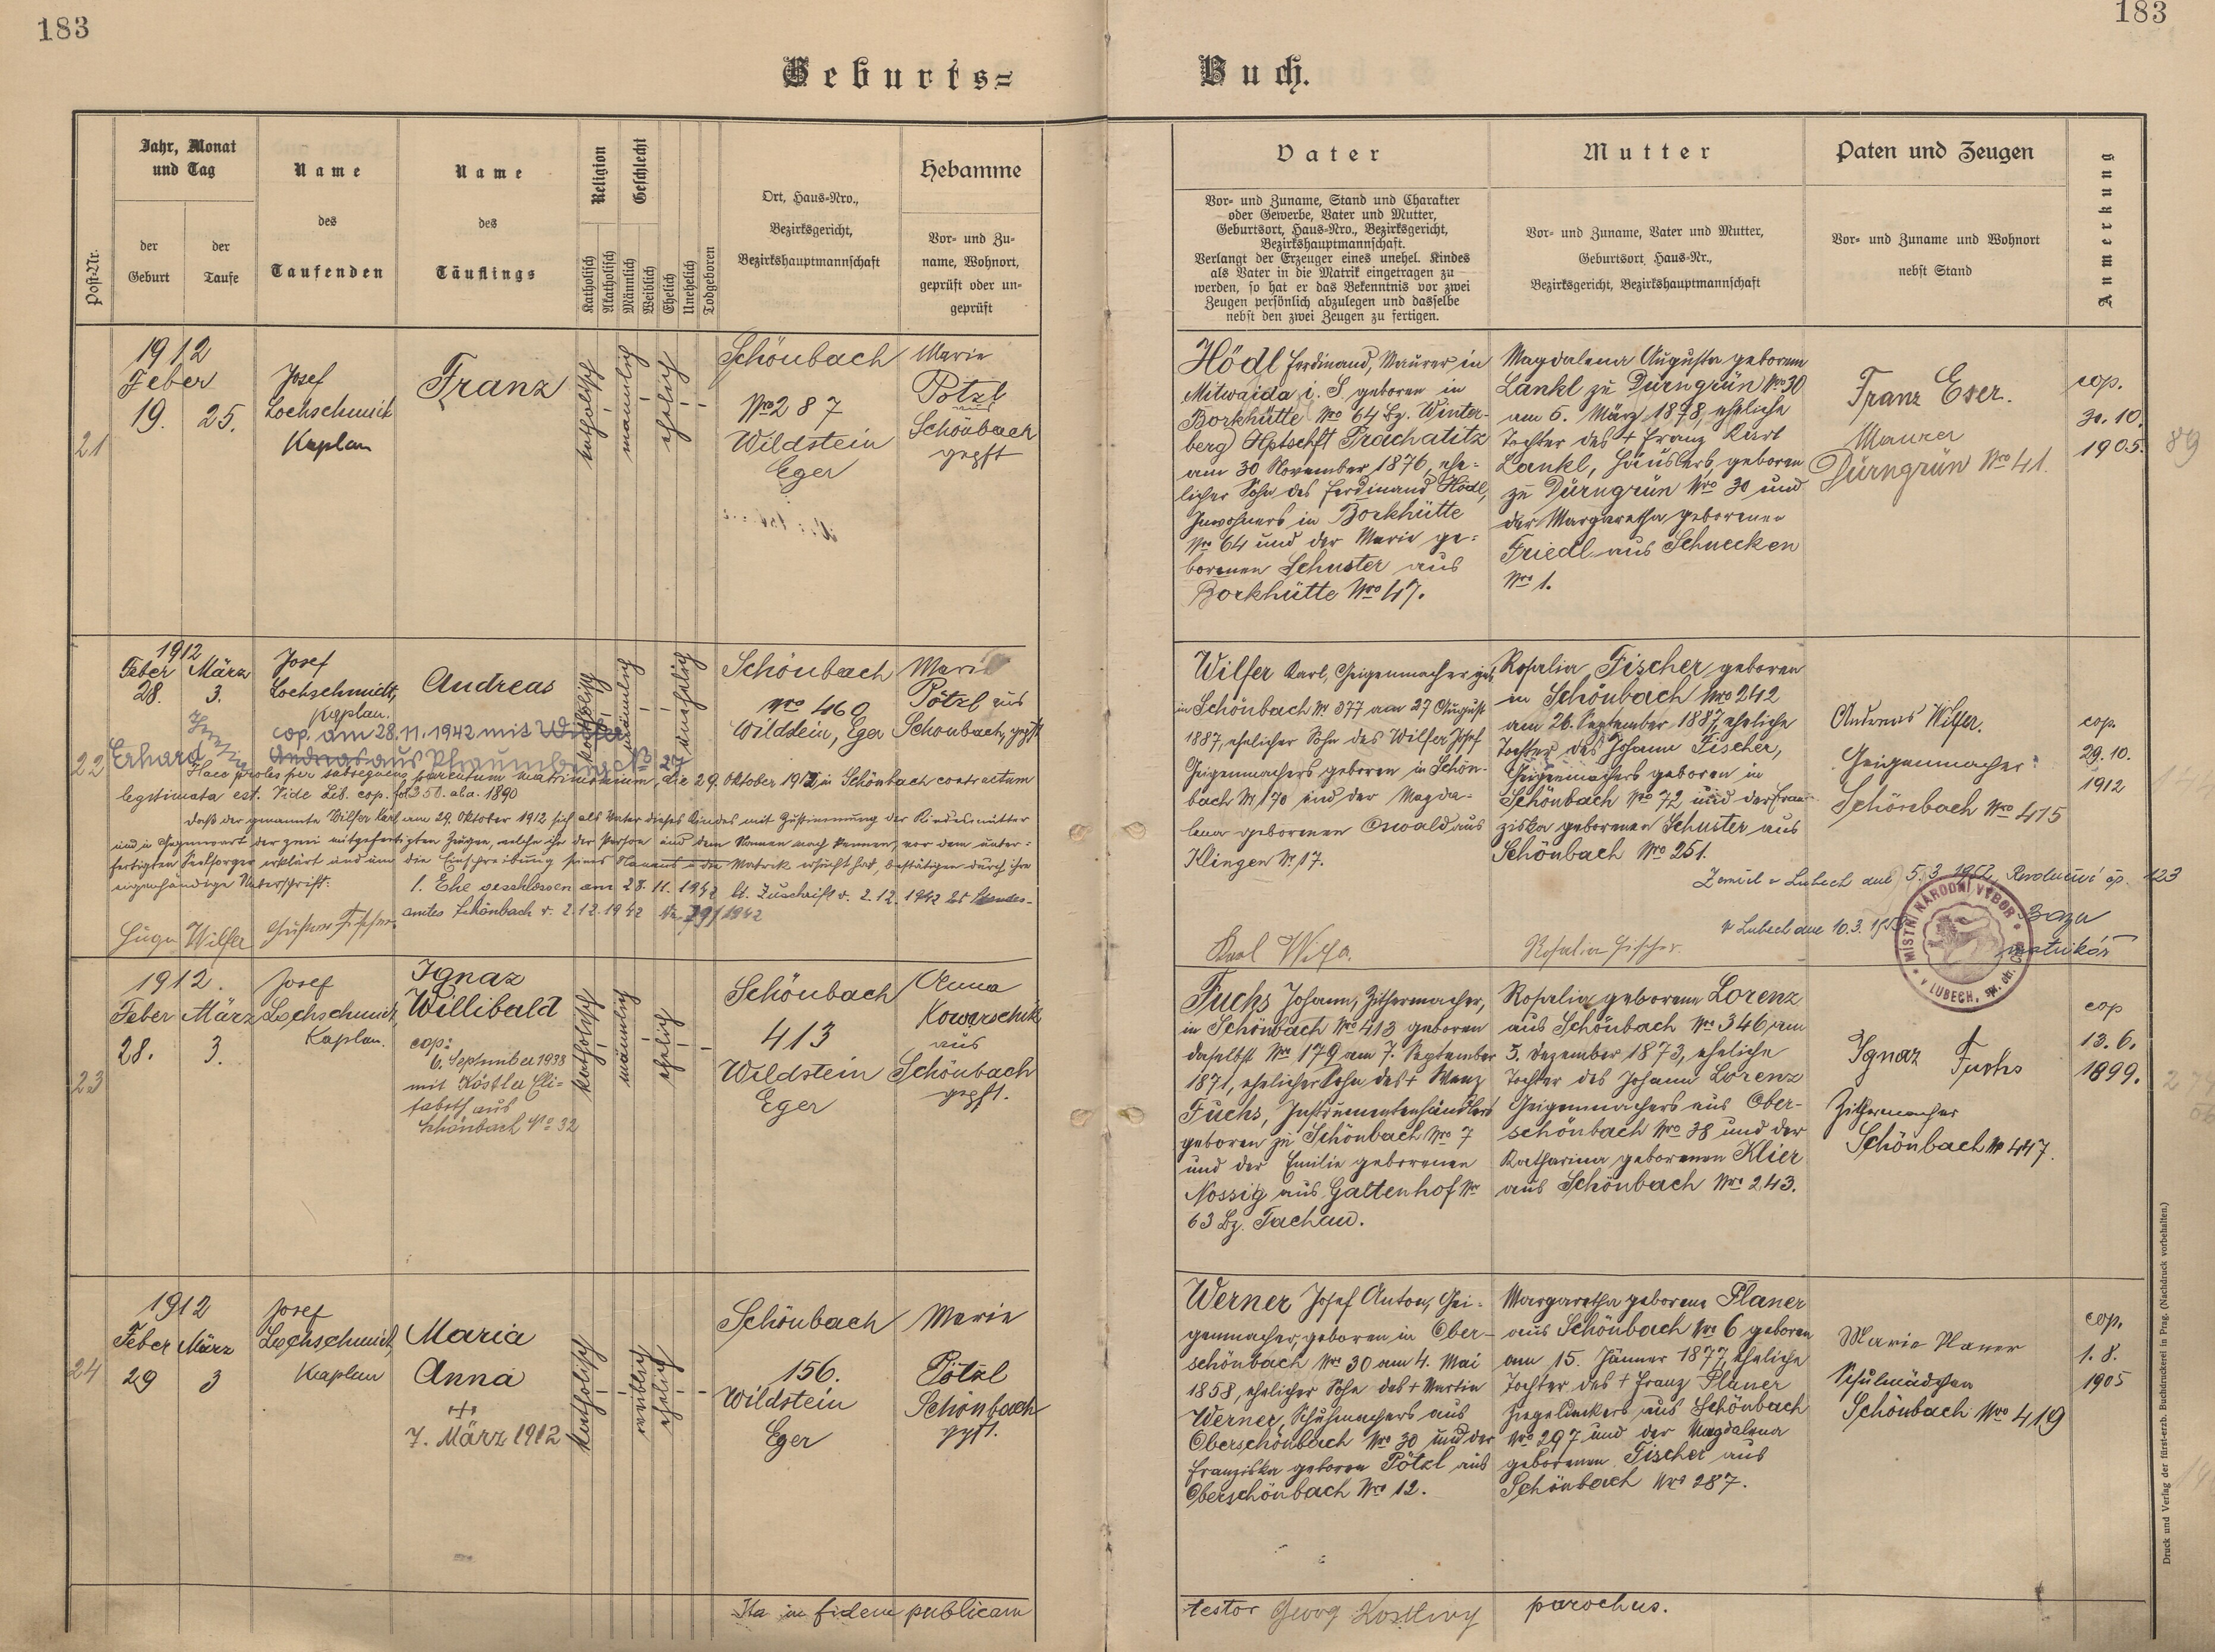 183
183
Geburts=
Buch.
Post-Nr.
Jahr, Monat
und Tag
der
Geburt
der
Taufe
Name
des
Taufenden
Name
des
Täuflings
Religion
Katholisch
Akatholisch
Geschlecht
Männlich
Weiblich
Ehelich
Unehelich
Todgeboren
Ort, Haus-Nro.,
Bezirksgericht,
Bezirkshauptmannschaft
Hebamme
Vor- und Zu-
name, Wohnort,
geprüft oder un-
geprüft
Vater
Vor- und Zuname, Stand und Charakter
oder Gewerbe, Vater und Mutter,
Geburtsort, Haus-Nro., Bezirksgericht,
Bezirkshauptmannschaft.
Verlangt der Erzeuger eines unehel. Kindes
als Vater in die Matrik eingetragen zu
werden, so hat er das Bekenntnis vor zwei
Zeugen persönlich abzulegen und dasselbe
nebst den zwei Zeugen zu fertigen.
Mutter
Vor- und Zuname, Vater und Mutter,
Geburtsort, Haus-Nr.,
Bezirksgericht, Bezirkshauptmannschaft
Paten und Zeugen
Vor- und Zuname und Wohnort
nebst Stand
Anmerkung
21
1912
Feber
19. 25.
Josef
Lochschmidt
Kaplan
Franz
katholisch
männlich
ehelich
Schönbach
Nro 287
Wildstein
Eger
Marie
Pötzl
aus
Schönbach
gepft
Hödl Ferdinand, Maurer in
Mitwaida i. S geboren in
Borkhütte Nro 64 Bz. Winter-
berg Hptschft Prachatitz
am 30 November 1876, ehe-
licher Sohn des Ferdinand Hödl,
Inwohners in Borkhütte
Nro 64 und der Marie ge-
borenen Schuster aus
Borkhütte Nro 47.
Magdalena Augusta geborene
Lankl zu Dürngrün Nro 30
am 6. März 1878, eheliche
Tochter des + Franz Karl
Lankl, Häuslers, geboren
zu Dürngrün Nro 30 und
der Margaretha geborenen
Friedl aus Schnecken
Nro 1.
Franz Eser.
Maurer
Dürngrün Nro 41.
cop.
30. 10.
1905.
89
22
1912
Feber März
28. 3.
Josef
Lochschmidt,
Kaplan.
Andreas
katholisch
männlich
unehelich
Schönbach
Nro 460
Wildstein, Eger
Marie
Pötzl aus
Schönbach, gepft
cop. am 28.11.1942 mit
Erhard
Haec proles per subsequens parentum matrimonium, die 29. Oktober 1912, in Schönbach contractum
legitimata est. Vide Lib. cop. fol 350. ad a. 1890
Daß der genannte Wilfer Karl am 29. Oktober 1912 sich als Vater dieses Kindes mit Zustimmung der Kindesmutter
und in Gegenwart der zwei mitgefertigten Zeugen, welche ihn der Person und dem Namen nach kennen, vor dem unter-
fertigten Seelsorger erklärt und um die Einschreibung seines Namens in die Matrik ersucht hat, bestätigen durch ihre
eigenhändige Unterschrift:
1. Ehe geschlossen am 28. 11. 1942 lt. Zuschrift v. 2. 12. 1942 des Standes-
amtes Schönbach v. 2.12.1942 Nr. 29/1942
Hugo Wilfer
Wilfer Karl, Geigenmacher geb,
in Schönbach Nr 377 am 27 August
1887, ehelicher Sohn des Wilfer Josef
Geigenmachers geboren in Schön-
bach Nr 170 und der Magda-
lena geborenen Oswald aus
Klingen Nr 17.
Rosalia Fischer geboren
in Schönbach Nro 242
am 26. September 1887, eheliche
Tochter des Johann Fischer,
Geigenmachers geboren in
Schönbach Nro 72 und der Fran-
ziska geborenen Schuster aus
Schönbach Nro 251.
Andreas Wilfer.
Geigenmacher
Schönbach Nro 415
cop.
29. 10.
1912
Zemřel v Lubech dne 5. 3. 1952, Revoluční čp. 123
v Lubech dne 10. 3.
matrikář
MÍSTNÍ NÁRODNÍ VÝBOR
V LUBECH,
Rosalia Fischer.
23
1912.
Feber März
28. 3.
Josef
Lochschmidt,
Kaplan.
Ignaz
Willibald
cop:
6. September 1938
mit Köstler Eli-
sabeth aus
Schönbach No 32
katholisch
männlich
ehelich
Schönbach
413
Wildstein
Eger
Anna
Kowerschik
aus
Schönbach
gepft.
Fuchs Johann, Zithermacher,
in Schönbach Nro 413 geboren
daselbst Nro 179 am 7. September
1871, ehelicher Sohn des + Wenz
Fuchs, Instrumentenhändlers
geboren zu Schönbach Nro 7
und der Emilie geborenen
Nossig aus Galtenhof Nr
63 Bz. Tachau.
Rosalia geborene Lorenz
aus Schönbach Nro 346 am
5. Dezember 1873, eheliche
Tochter des Johann Lorenz
Geigenmachers aus Ober-
schönbach Nro 38 und der
Katharina geborenen Klier
aus Schönbach Nro 243.
Ignaz Fuchs
Zithermacher
Schönbach Nr 447.
cop
13. 6.
1899.
24
1912
Feber März
29 3
Josef
Lochschmidt,
Kaplan
Maria
Anna
7. März 1912
katholisch
weiblich
ehelich
Schönbach
156.
Wildstein
Eger
Marie
Pötzl
Schönbach
gepft.
Werner Josef Anton, Gei-
genmacher, geboren in Ober-
schönbach Nro 30 am 4. Mai
1858, ehelicher Sohn des + Martin
Werner, Schuhmachers aus
Oberschönbach Nro 30 und der
Franziska geboren Pötzl aus
Oberschönbach Nro 12.
Margaretha geborene Planer
aus Schönbach Nro 6 geboren
am 15. Jänner 1877, eheliche
Tochter des + Franz Planer
Ziegeldeckers aus Schönbach
Nro 297 und der Magdalena
geborenen Fischer aus
Schönbach Nro 287.
Marie Planer
Schulmädchen
Schönbach Nro 419
cop.
1. 8.
1905
Ita in fidem publicam
testor Georg Kostlivy parochus.
Druck und Verlag der fürst-erzb. Buchdruckerei in Prag. (Nachdruck vorbehalten.)